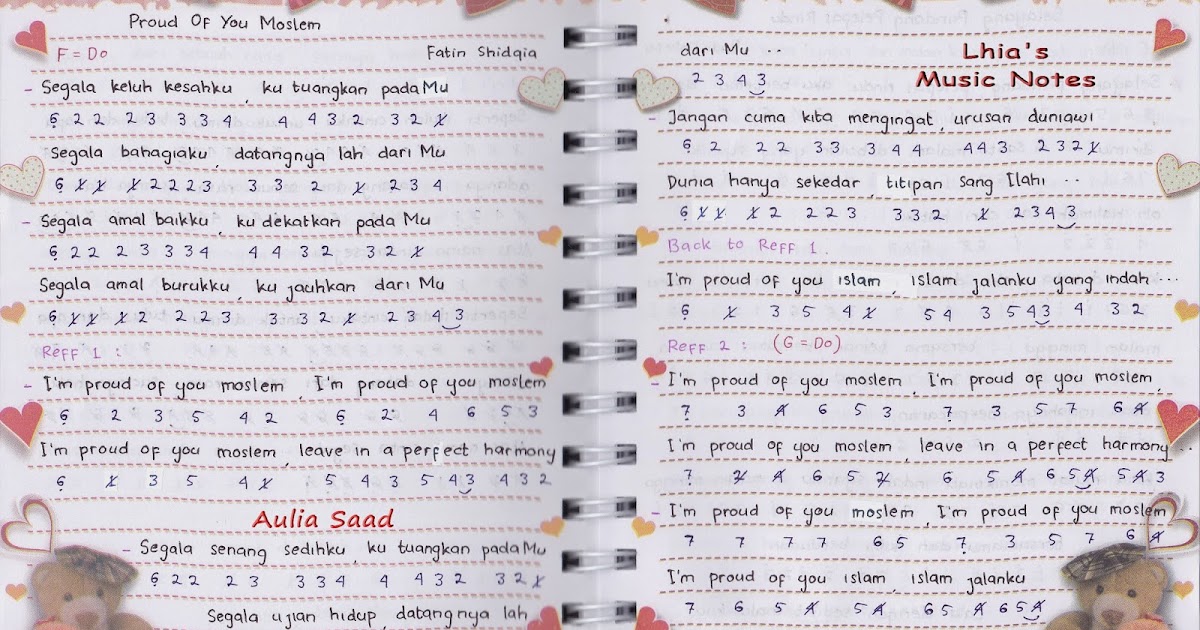 Proud Of You Moslem
F = Do Fatin Shidqia
- Segala keluh kesahku, ku tuangkan padaMu
6 2 2 2 3 3 3 4 4 4 3 2 3 2 1
Segala bahagiaku, datangnya lah dari Mu
6 1 1 1 2 2 2 3 3 3 2 1 2 3 4
- Segala amal baikku, ku dekatkan pada Mu
6 2 2 2 3 3 3 4 4 4 3 2 3 2 1
Segala amal burukku, ku jauhkan dari Mu
6 1 1 1 2 2 2 3 3 3 2 1 2 3 4 3
Reff 1 :
- I'm proud of you moslem, I'm proud of you moslem
6 2 3 5 4 2 6 2 4 6 5 3
I'm proud of you moslem, leave in a perfect harmony
6 1 3 5 4 1 5 4 3 5 4 3 4 3 2
Aulia Saad
- Segala senang sedihku, ku tuangkan padaMu
6 2 2 2 3 3 3 4 4 4 3 2 3 2 1
Segala ujian hidup, datangnya lah
dari Mu ..
2 3 4 3
Lhia's
Music Notes
- Jangan cuma kita mengingat, urusan duniawi
6 2 2 2 3 3 3 4 4 4 4 3 2 3 2 1
Dunia hanya sekedar, titipan sang Ilahi ...
6 1 1 1 2 2 2 3 3 3 2 1 2 3 4 3
Back to Reff 1.
I'm proud of you islam, islam jalanku yang indah ...
6 1 3 5 4 1 5 4 3 5 4 3 4 3 2
Reff 2 : (G = Do)
- I'm proud of you moslem, I'm proud of you moslem,
7 3 4 6 5 3 7 3 5 7 6 4
I'm proud of you moslem, leave in a perfect harmony ..
7 2 4 6 5 2 6 5 4 6 5 4 5 4 3
- I'm proud of you moslem, I'm proud of you moslem
7 7 7 7 6 5 7 3 5 7 6 4
I'm proud of you islam, islam jalanku
7 6 5 4 5 4 6 5 4 6 5 4